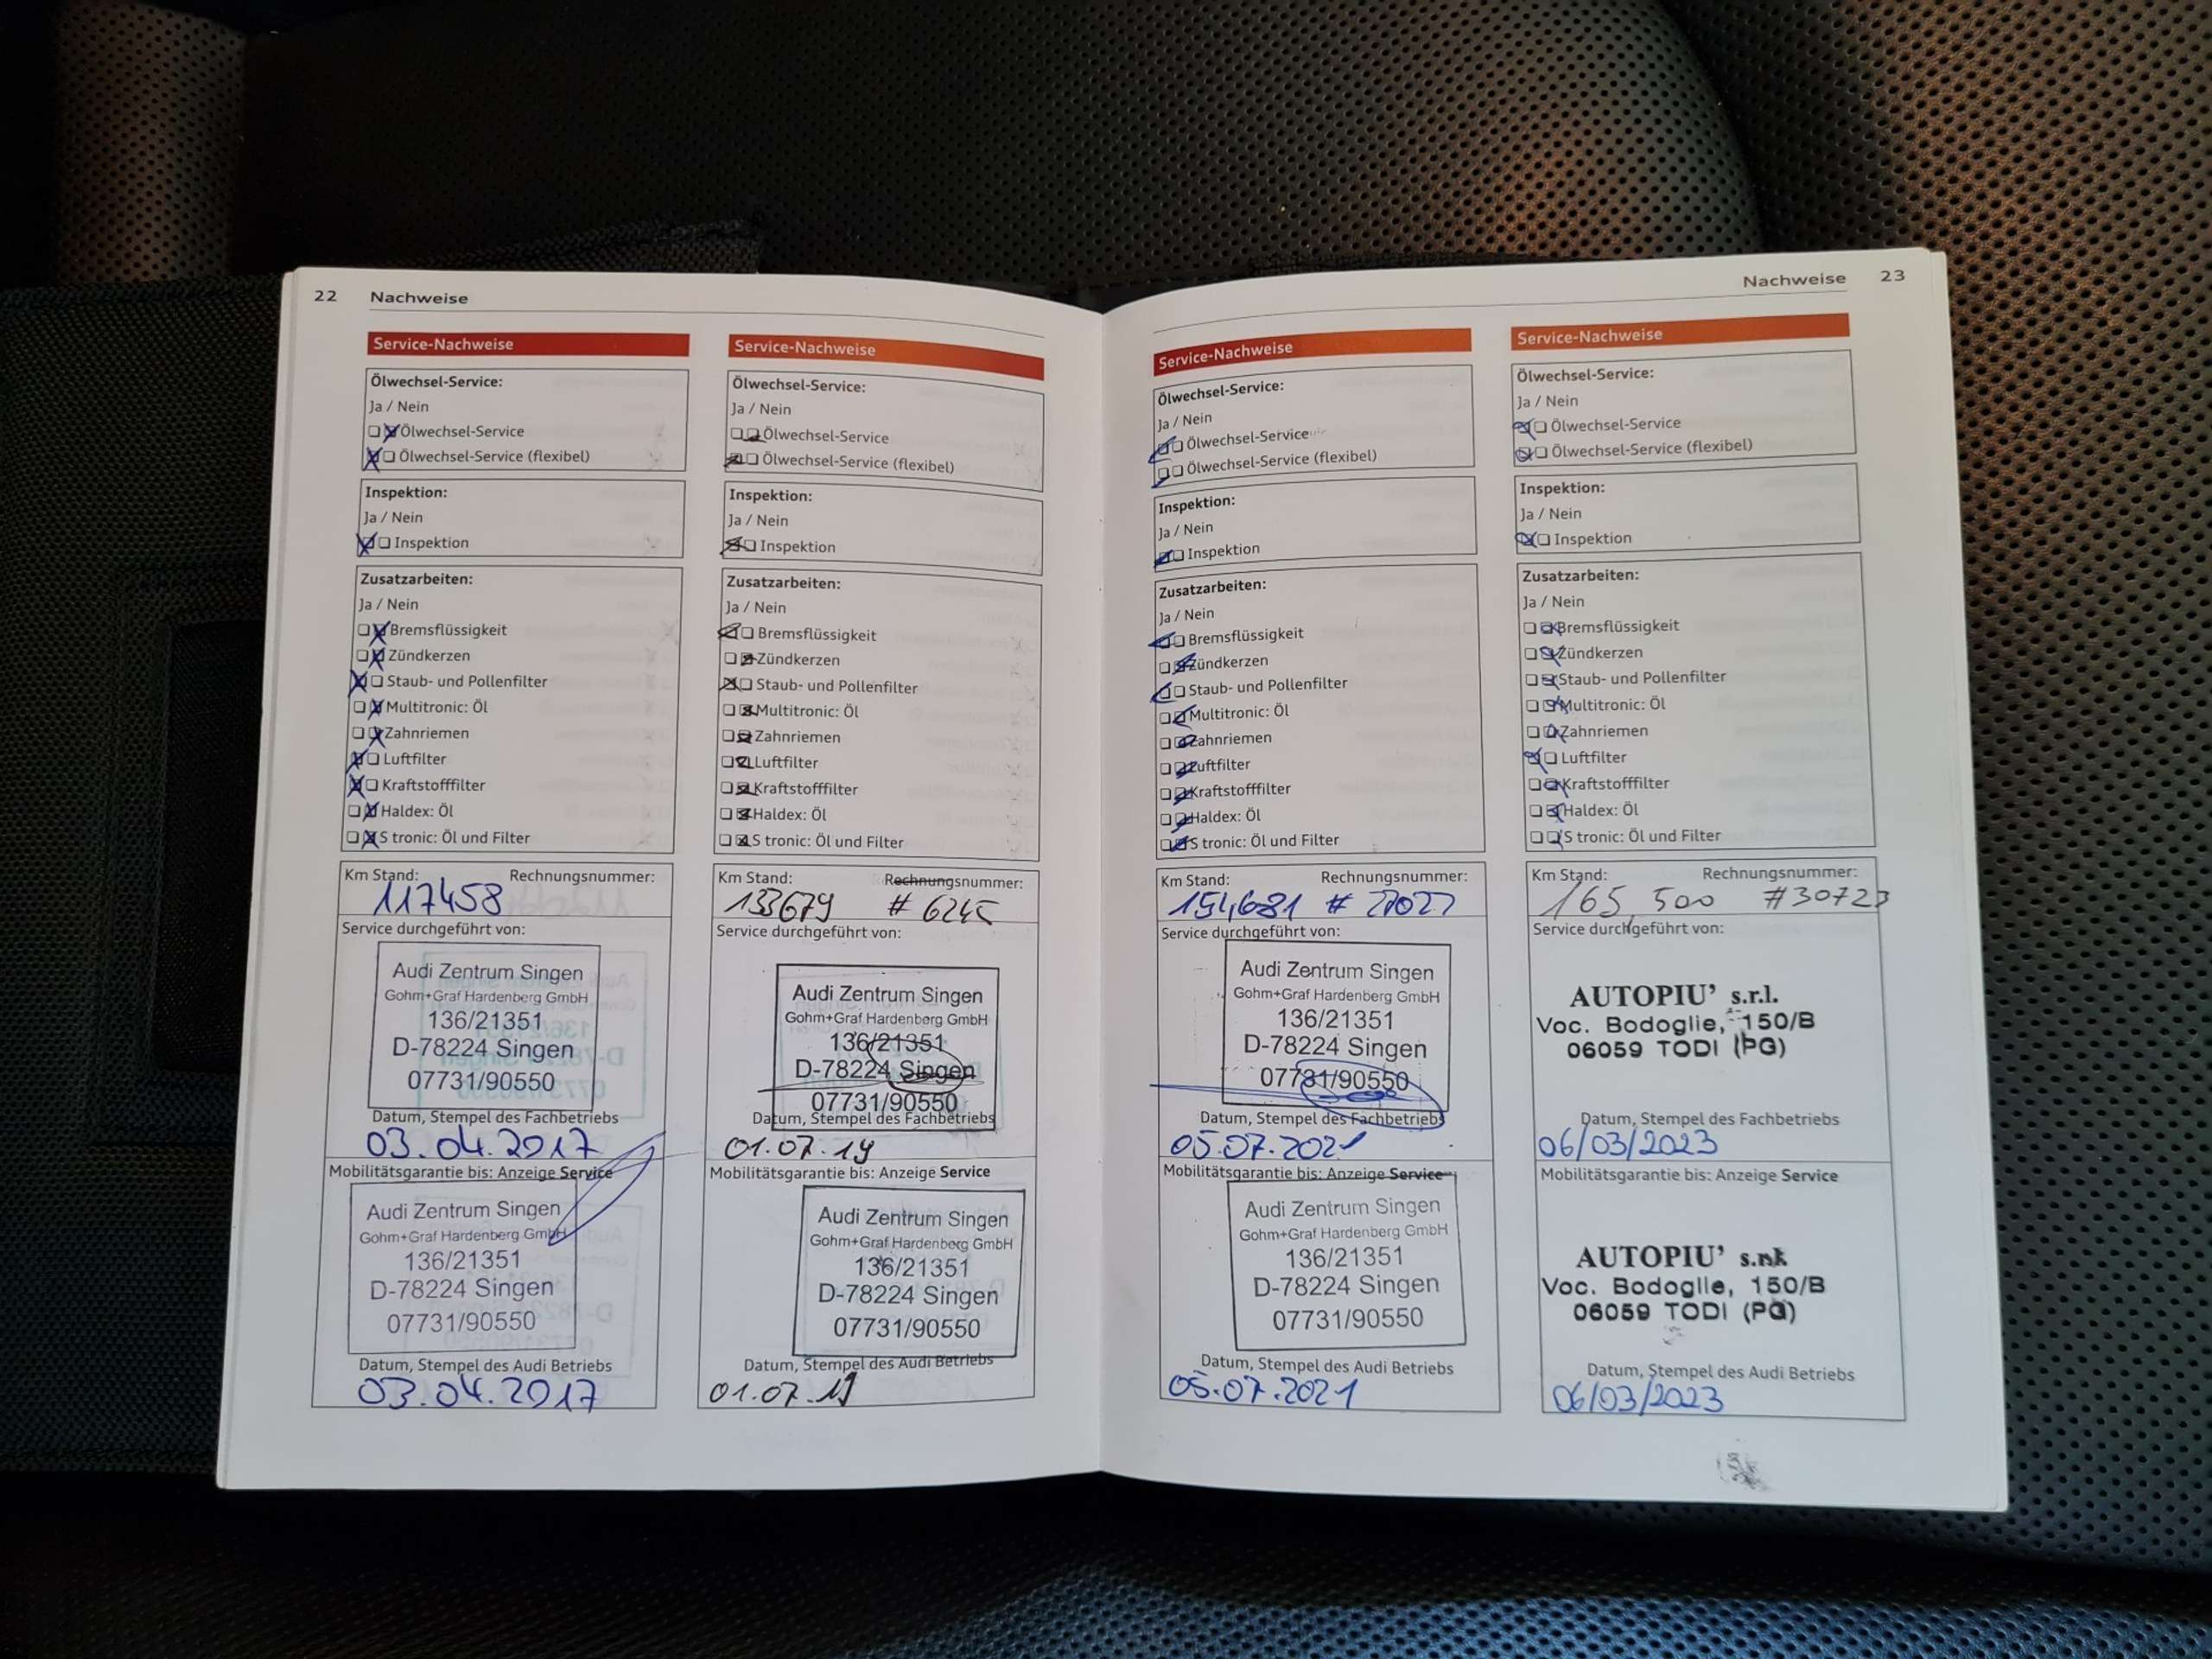 22 Nachweise
Service-Nachweise
Ölwechsel-Service:
Ja / Nein
Ölwechsel-Service
Ölwechsel-Service (flexibel)
Inspektion:
Ja / Nein
Inspektion
Zusatzarbeiten:
Ja / Nein
Bremsflüssigkeit
Zündkerzen
Staub- und Pollenfilter
Multitronic: Öl
Zahnriemen
Luftfilter
Kraftstofffilter
Haldex: Öl
S tronic: Öl und Filter
Km Stand: Rechnungsnummer:
117458
Service durchgeführt von:
Audi Zentrum Singen
Gohm+Graf Hardenberg GmbH
136/21351
D-78224 Singen
07731/90550
Datum, Stempel des Fachbetriebs
03.04.2017
Mobilitätsgarantie bis: Anzeige Service
Audi Zentrum Singen
Gohm+Graf Hardenberg GmbH
136/21351
D-78224 Singen
07731/90550
Datum, Stempel des Audi Betriebs
03.04.2017
Service-Nachweise
Ölwechsel-Service:
Ja / Nein
Ölwechsel-Service
Ölwechsel-Service (flexibel)
Inspektion:
Ja / Nein
Inspektion
Zusatzarbeiten:
Ja / Nein
Bremsflüssigkeit
Zündkerzen
Staub- und Pollenfilter
Multitronic: Öl
Zahnriemen
Luftfilter
Kraftstofffilter
Haldex: Öl
S tronic: Öl und Filter
Km Stand: Rechnungsnummer:
133679 # 6245
Service durchgeführt von:
Audi Zentrum Singen
Gohm+Graf Hardenberg GmbH
136/21351
D-78224 Singen
07731/90550
Datum, Stempel des Fachbetriebs
01.07.19
Mobilitätsgarantie bis: Anzeige Service
Audi Zentrum Singen
Gohm+Graf Hardenberg GmbH
136/21351
D-78224 Singen
07731/90550
Datum, Stempel des Audi Betriebs
01.07.19
Nachweise 23
Service-Nachweise
Ölwechsel-Service:
Ja / Nein
Ölwechsel-Service
Ölwechsel-Service (flexibel)
Inspektion:
Ja / Nein
Inspektion
Zusatzarbeiten:
Ja / Nein
Bremsflüssigkeit
Zündkerzen
Staub- und Pollenfilter
Multitronic: Öl
Zahnriemen
Luftfilter
Kraftstofffilter
Haldex: Öl
S tronic: Öl und Filter
Km Stand: Rechnungsnummer:
154681 #
Service durchgeführt von:
Audi Zentrum Singen
Gohm+Graf Hardenberg GmbH
136/21351
D-78224 Singen
07731/90550
Datum, Stempel des Fachbetriebs
05.07.2021
Mobilitätsgarantie bis: Anzeige Service
Audi Zentrum Singen
Gohm+Graf Hardenberg GmbH
136/21351
D-78224 Singen
07731/90550
Datum, Stempel des Audi Betriebs
05.07.2021
Service-Nachweise
Ölwechsel-Service:
Ja / Nein
Ölwechsel-Service
Ölwechsel-Service (flexibel)
Inspektion:
Ja / Nein
Inspektion
Zusatzarbeiten:
Ja / Nein
Bremsflüssigkeit
Zündkerzen
Staub- und Pollenfilter
Multitronic: Öl
Zahnriemen
Luftfilter
Kraftstofffilter
Haldex: Öl
S tronic: Öl und Filter
Km Stand: Rechnungsnummer:
165 500 #30723
Service durchgeführt von:
AUTOPIU' s.r.l.
Voc. Bodoglie, 150/B
06059 TODI (PG)
Datum, Stempel des Fachbetriebs
06/03/2023
Mobilitätsgarantie bis: Anzeige Service
AUTOPIU'
Voc. Bodoglie, 150/B
06059 TODI (PG)
Datum, Stempel des Audi Betriebs
06/03/2023